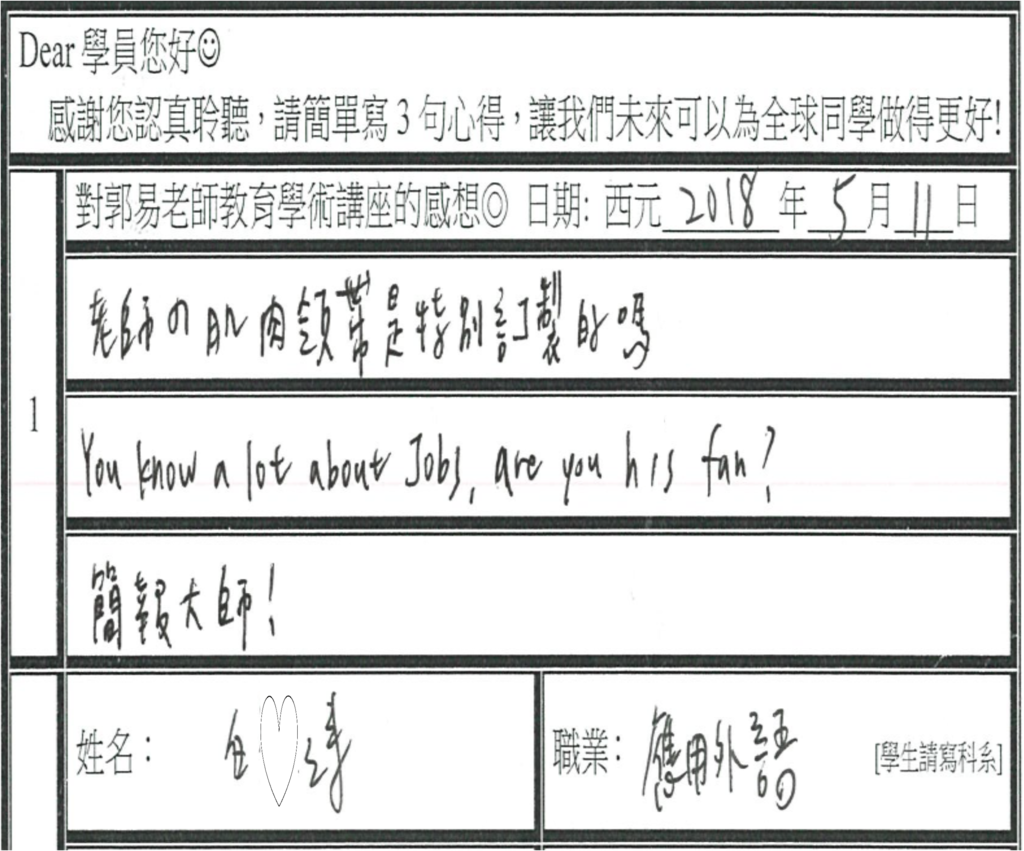 Dear 學員您好☺
感謝您認真聆聽，請簡單寫 3 句心得，讓我們未來可以為全球同學做得更好!
對郭易老師教育學術講座的感想◎ 日期: 西元 2018 年 5 月 11 日
老師の肌肉領帶是特別訂製的嗎
1
You know a lot about Jobs, are you his fan?
簡報大師!
姓名：
職業： 應用外語 [學生請寫科系]